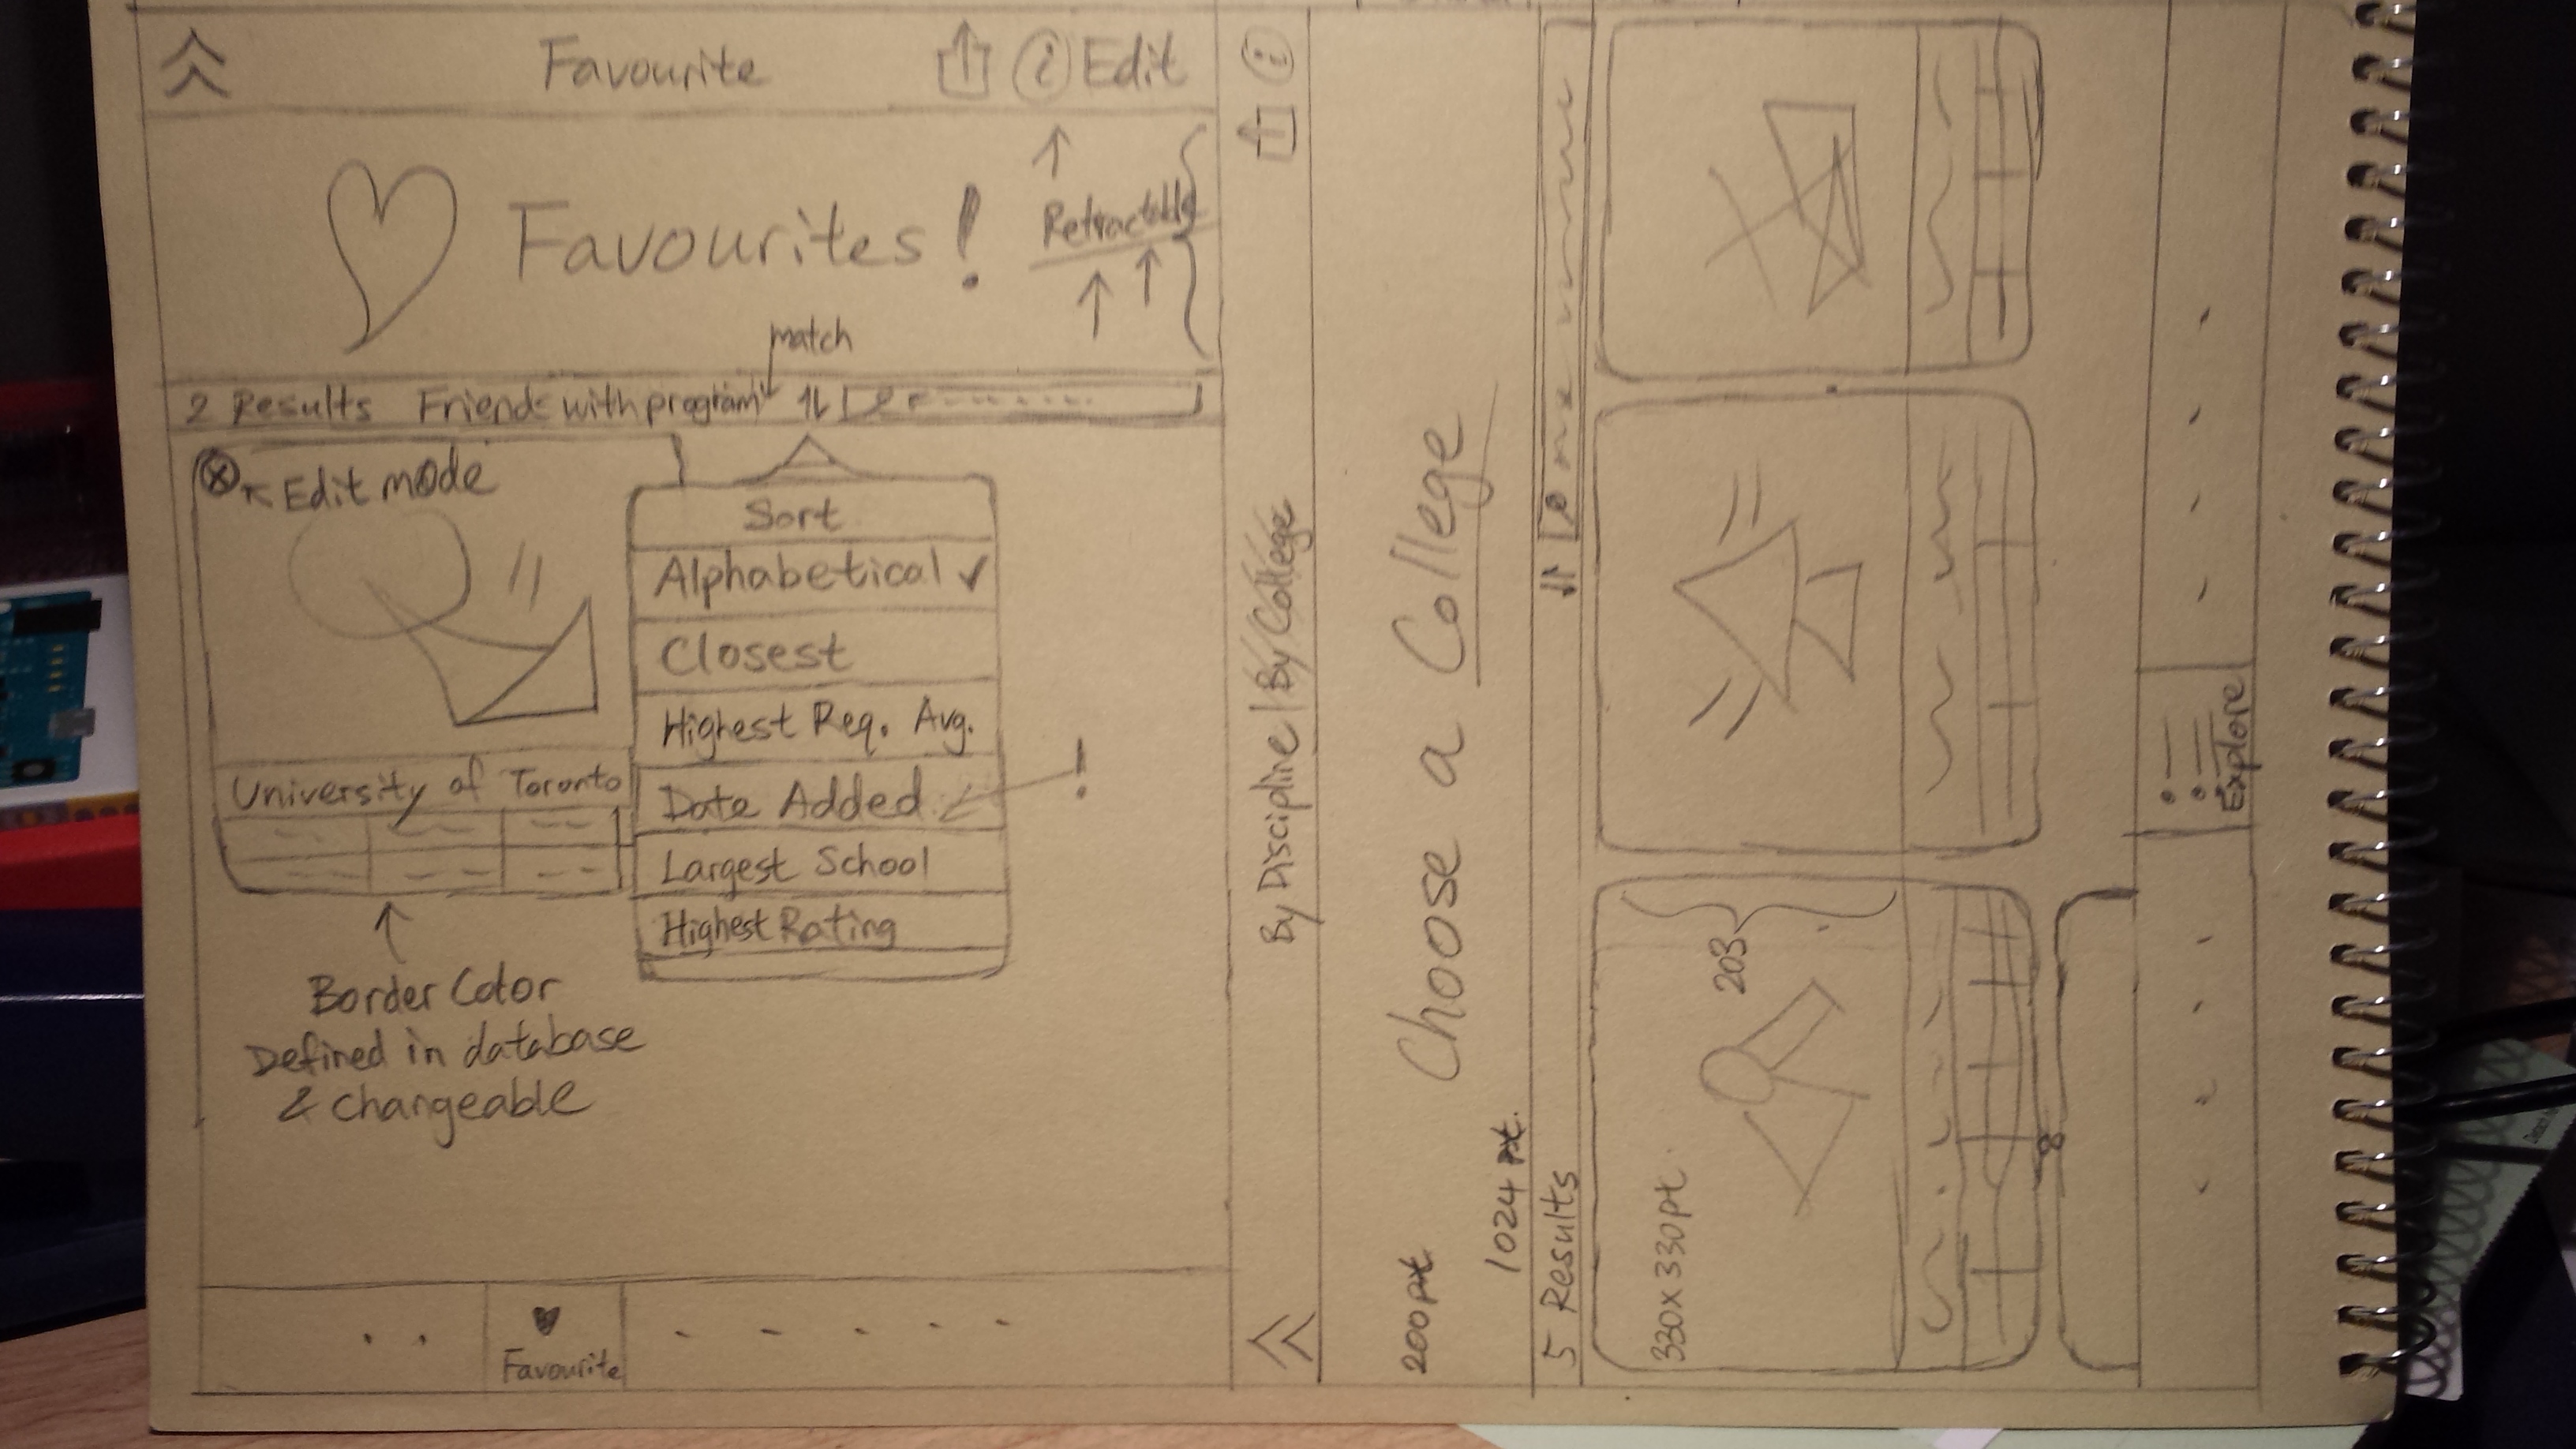 Favourite i Edit
Favourites!
Retractable
match
2 Results Friends with program
Edit mode
Sort
Alphabetical ✓
Closest
Highest Req. Avg.
Date Added
!
Largest School
Highest Rating
University of Toronto
Border Color
Defined in database
& changeable
Favourite
By Discipline | By College i
Choose a College
200pt
1024 pt.
5 Results
330 x 330pt.
203
8
Explore